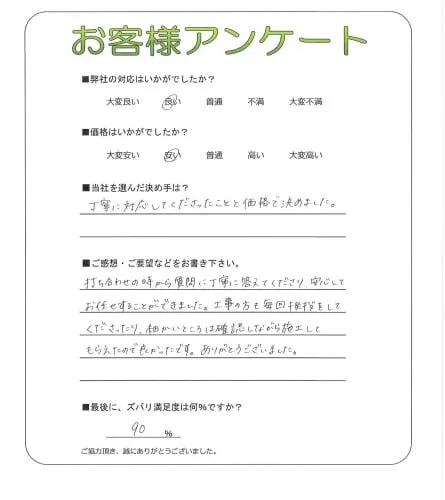 お客様アンケート
■弊社の対応はいかがでしたか？
大変良い 良い 普通 不満 大変不満
■価格はいかがでしたか？
大変安い 安い 普通 高い 大変高い
■当社を選んだ決め手は？
丁寧に対応してくださったことと価格で決めました。
■ご感想・ご要望などをお書き下さい。
打ち合わせの時から質問に丁寧に答えてくださり、安心して
お任せすることができました。工事の方も毎回挨拶をして
くださったり、細かいところは確認しながら施工して
もらえたので良かったです。ありがとうございました。
■最後に、ズバリ満足度は何%ですか？
90 %
ご協力頂き、誠にありがとうございました。